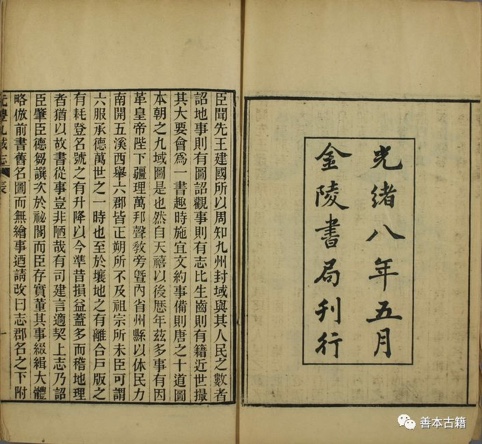 光緒八年五月
金陵書局刊行
臣聞先王建國所以周知九州封域與其人民之數者
詔地事則有圖詔觀事則有志比生齒則有籍近世撮
其大要會爲一書趣時施宜文約事備則唐之十道圖
本朝之九域圖是也然自天禧以後歷年茲多事有因
革皇帝陛下疆理萬邦聲敎旁曁內省州縣以休民力
南開五溪西舉六郡皆正朔所不及祖宗所未臣可謂
六服承德萬世之一時也至於壤地之有離合戶版之
有耗登名號之有升降以今準昔損益蓋多而稽地理
者猶以故書從事豈非陋哉有司建言適契上志乃詔
臣肇臣德芻譔次於祕閣而臣存實董其事綴緝大體
略倣前書舊名圖而無繪事迺請改曰志郡名之下附
元豐九域志 表 一
善本古籍